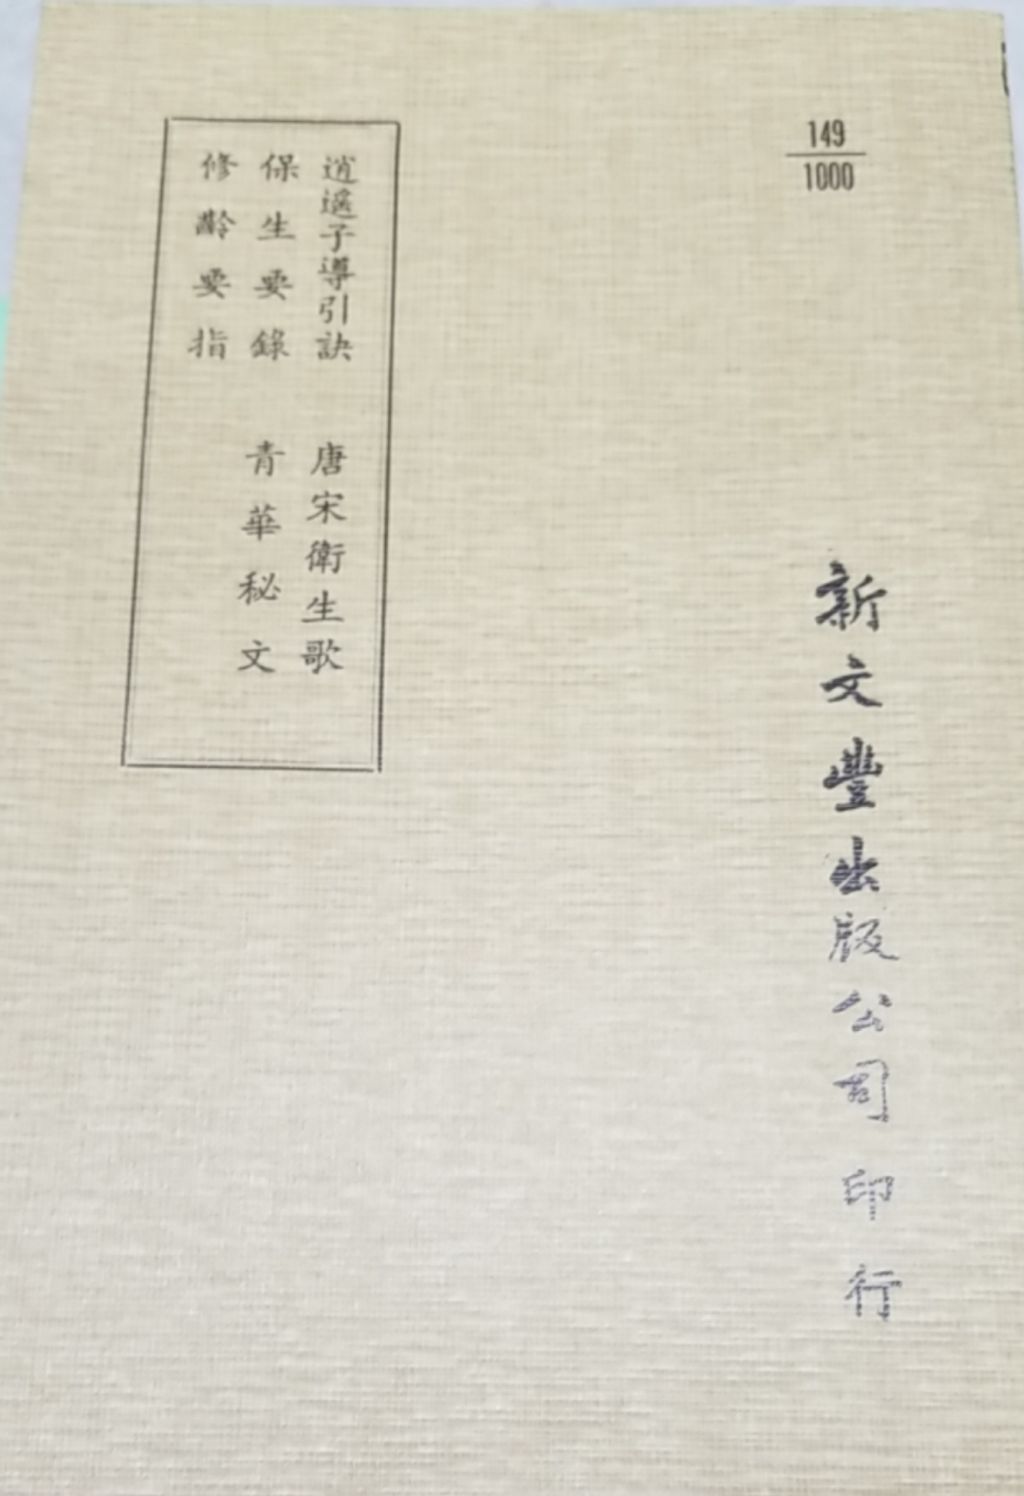 149
1000
逍遙子導引訣
唐宋衛生歌
保生要錄
青華秘文
修齡要指
新文豐出版公司 印行